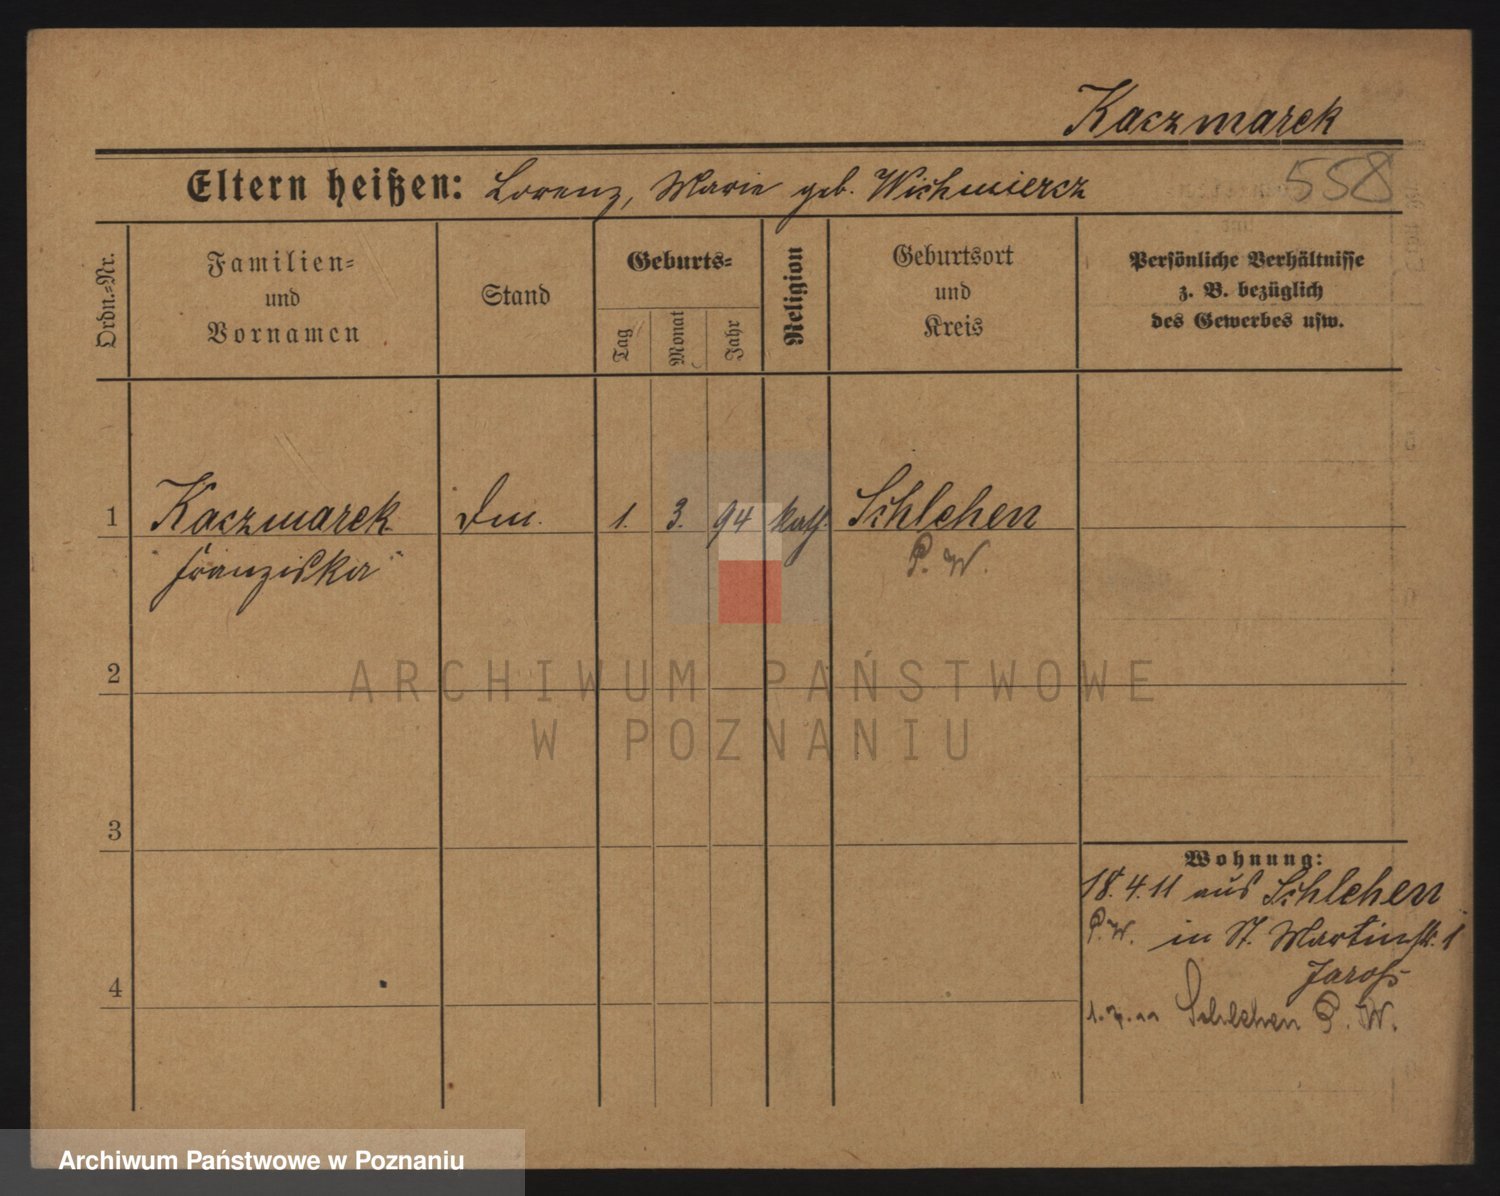 Kaczmarek
558
Eltern heißen: Lorenz, Marie geb. Wichmiercz
Ordn.=Nr.
Familien=
und
Vornamen
Stand
Geburts=
Tag
Monat
Jahr
Religion
Geburtsort
und
Kreis
Persönliche Verhältnisse
z. B. bezüglich
des Gewerbes usw.
1 Kaczmarek Dm. 1. 3. 94 kath Schlehen
Franziska P. W.
2
ARCHIWUM PAŃSTWOWE
W POZNANIU
3
Wohnung:
18.4.11 aus Schlehen
P. W. in St. Martinstr. 1
Jaroſz
4
1.7.11 Schlehen P. W.
Archiwum Państwowe w Poznaniu